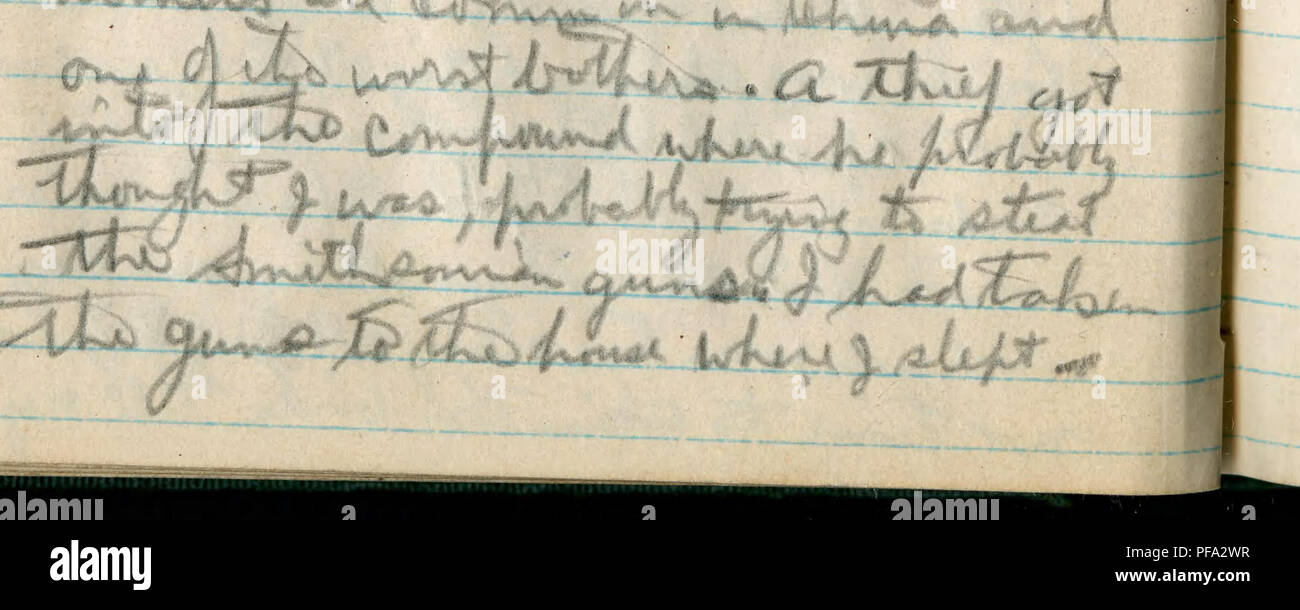 are common in China and
one of its worst bothers. A thief got
into the compound where he probably
thought I was, probably trying to steal
the Smithsonian guns. I had taken
the guns to the house where I slept
alamy
a
a
alamy
a
alamy
Image ID: PFA2WR
www.alamy.com